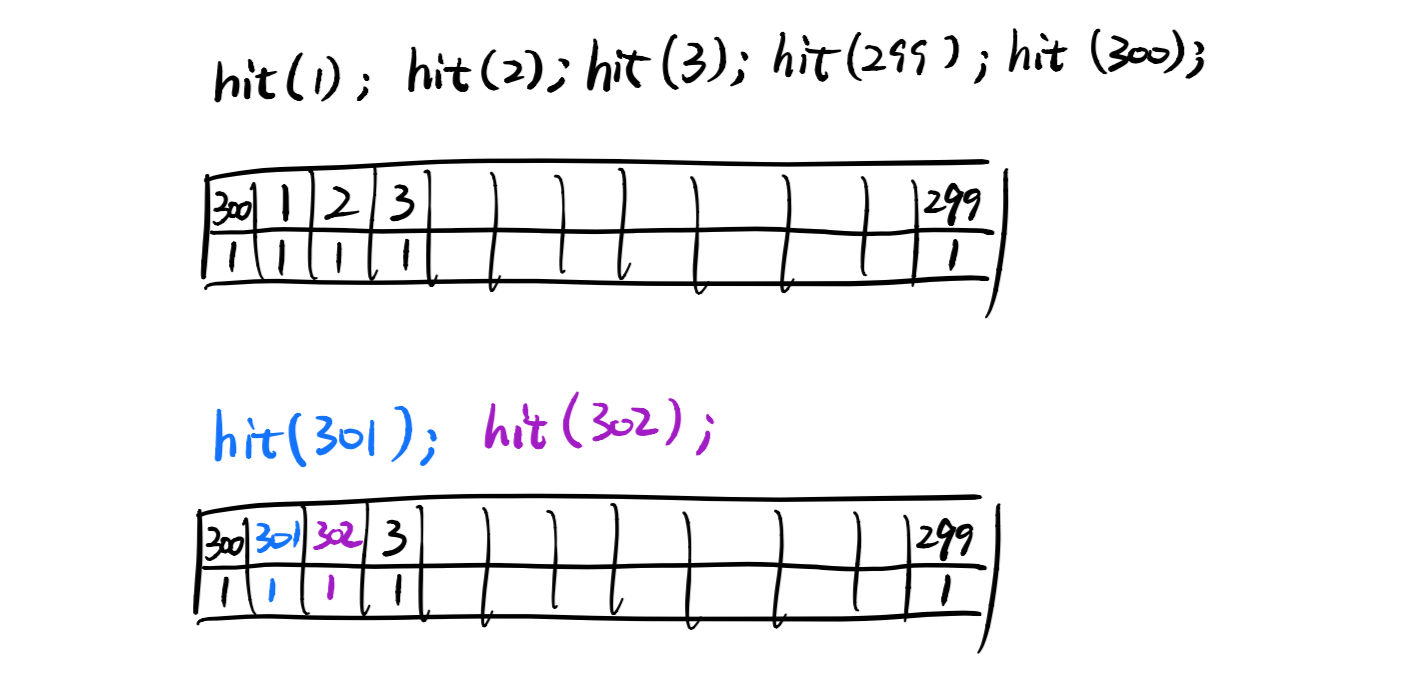 hit(1); hit(2); hit(3); hit(299); hit(300);
300 1 2 3 299
1 1 1 1 1
hit(301); hit(302);
300 301 302 3 299
1 1 1 1 1